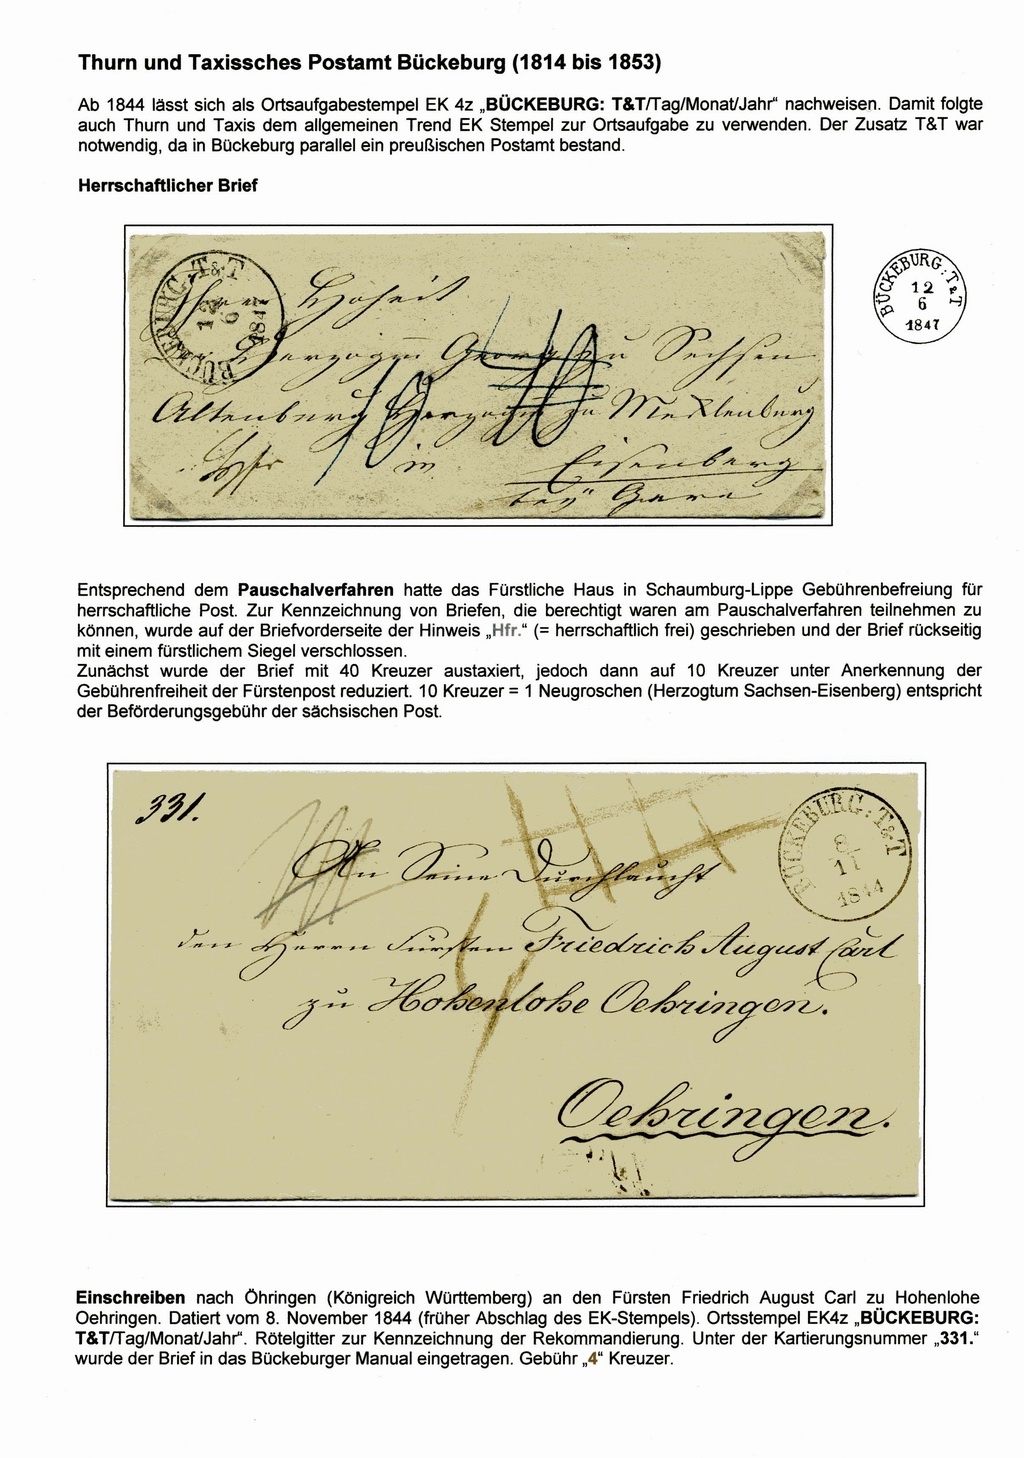 Thurn und Taxissches Postamt Bückeburg (1814 bis 1853)
Ab 1844 lässt sich als Ortsaufgabestempel EK 4z „BÜCKEBURG: T&T/Tag/Monat/Jahr“ nachweisen. Damit folgte
auch Thurn und Taxis dem allgemeinen Trend EK Stempel zur Ortsaufgabe zu verwenden. Der Zusatz T&T war
notwendig, da in Bückeburg parallel ein preußischen Postamt bestand.
Herrschaftlicher Brief
BÜCKEBURG: T&T
12
6
1847
Ihrer Hoheit
Herzogin Georg zu Sachsen
Altenburg Herzogin zu Mecklenburg
Hfr in Eisenberg
bey Gera
10 40
BÜCKEBURG: T&T
12
6
1847
Entsprechend dem Pauschalverfahren hatte das Fürstliche Haus in Schaumburg-Lippe Gebührenbefreiung für
herrschaftliche Post. Zur Kennzeichnung von Briefen, die berechtigt waren am Pauschalverfahren teilnehmen zu
können, wurde auf der Briefvorderseite der Hinweis „Hfr.“ (= herrschaftlich frei) geschrieben und der Brief rückseitig
mit einem fürstlichem Siegel verschlossen.
Zunächst wurde der Brief mit 40 Kreuzer austaxiert, jedoch dann auf 10 Kreuzer unter Anerkennung der
Gebührenfreiheit der Fürstenpost reduziert. 10 Kreuzer = 1 Neugroschen (Herzogtum Sachsen-Eisenberg) entspricht
der Beförderungsgebühr der sächsischen Post.
331.
BÜCKEBURG: T&T
8
11
1844
An Seine Durchlaucht
den Herrn Fürsten Friedrich August Carl
zu Hohenlohe Oehringen.
4
Oehringen.
Einschreiben nach Öhringen (Königreich Württemberg) an den Fürsten Friedrich August Carl zu Hohenlohe
Oehringen. Datiert vom 8. November 1844 (früher Abschlag des EK-Stempels). Ortsstempel EK4z „BÜCKEBURG:
T&T/Tag/Monat/Jahr“. Rötelgitter zur Kennzeichnung der Rekommandierung. Unter der Kartierungsnummer „331.“
wurde der Brief in das Bückeburger Manual eingetragen. Gebühr „4“ Kreuzer.